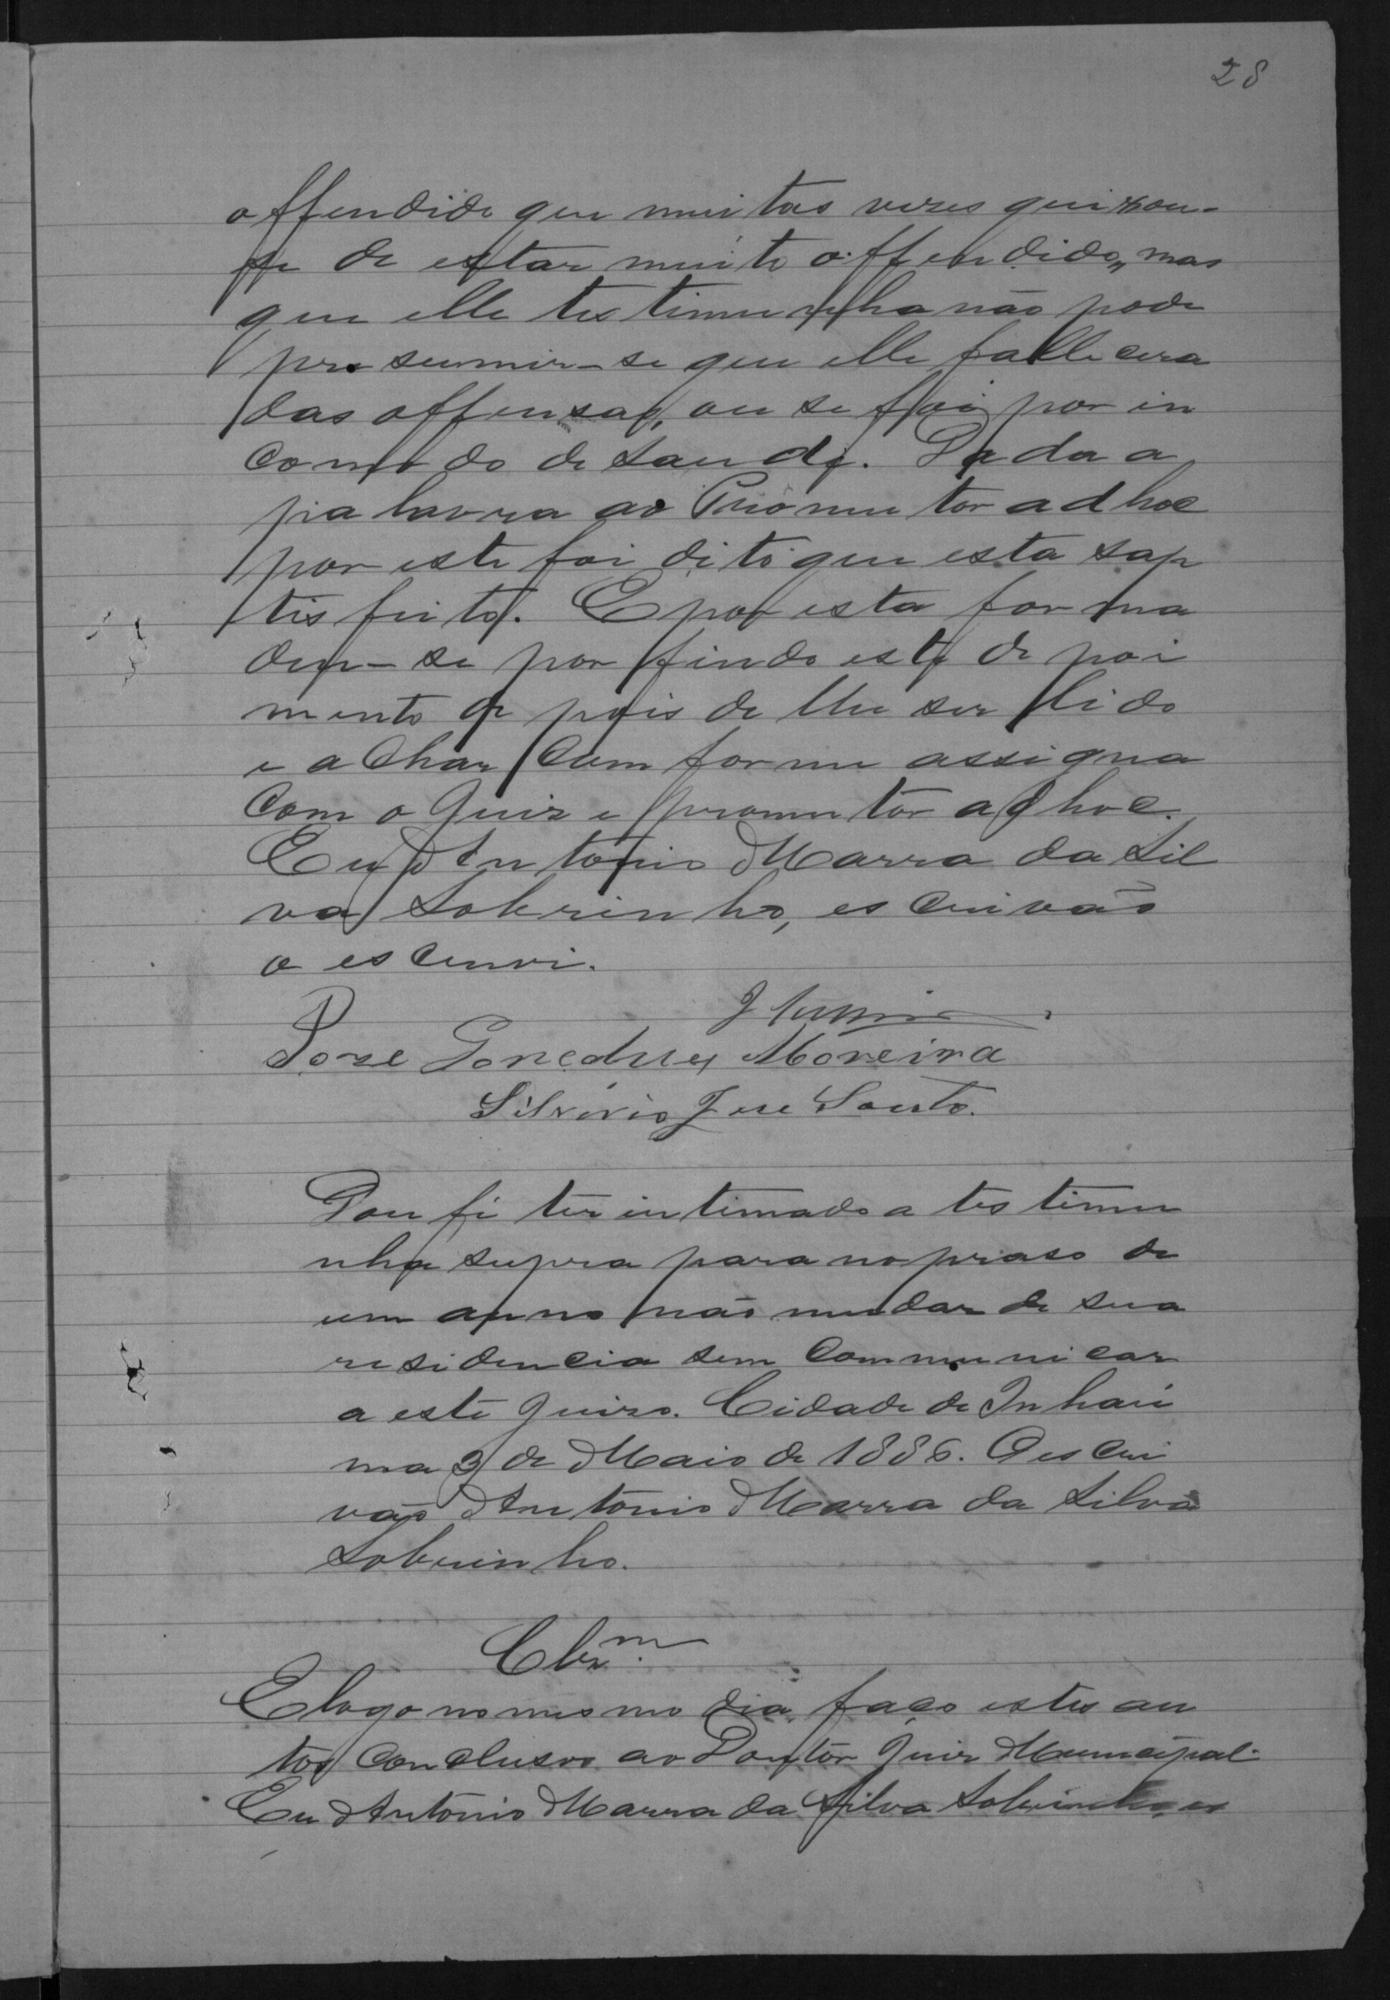 28
offendido que muitas vezes queixou-
se de estar muito offendido, mas
que elle testimunha não pode
presumir-se que elle fallecera
das offensas, ou se foi por in
comodo de saude. Dada a
palavra ao Promutor adhoc
por este foi dito que esta sas
tisfeito. E por esta forma
deu-se por findo este depoi
mento depois de lhe ser lido
e achar comforme assigna
com o Juiz e promutor adhoc.
Eu Antonio Marra da Sil
va Sobrinho, escrivão
o escrevi.
Jose Gonçalves Moreira
Silverio Jose Souto.
Dou fé ter intimado a testimu
nha supra para no praso de
um anno não mudar de sua
residencia sem communicar
a este Juizo. Cidade de Inhaú
ma 3 de Maio de 1886. O escri
vão Antonio Marra da Silva
Sobrinho.
Clzm.
E logo no mesmo dia faço estes au
tos conclusos ao Doutor Juiz Municipal.
Eu Antonio Marra da Silva Sobrinho, es